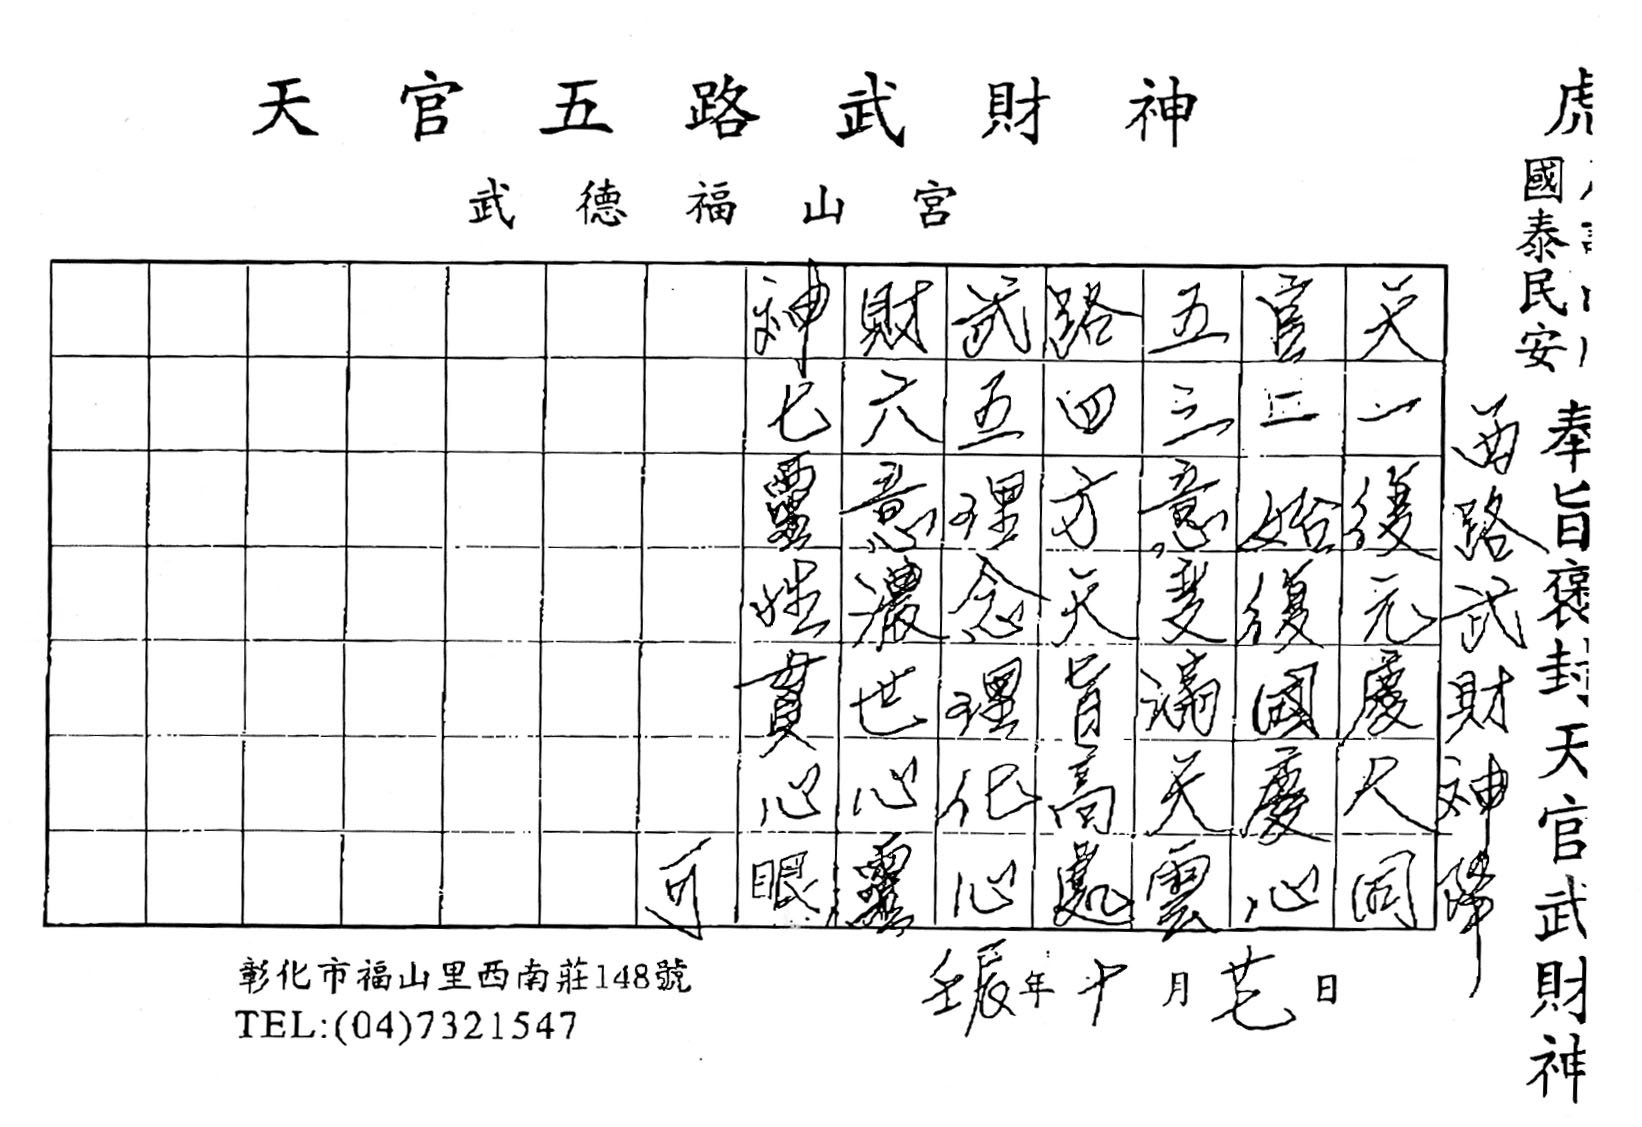 天官五路武財神
武德福山宮
虎
國泰民安
奉旨褒封天官武財神
西路武財神降
天一復元慶人同
官二始復國慶心
五三意雙滿天雲
路四方天旨高處
武五理念理化心
財六意濃世心靈
神七靈性貫心眼
可
壬辰年十月廿七日
彰化市福山里西南莊148號
TEL:(04)7321547